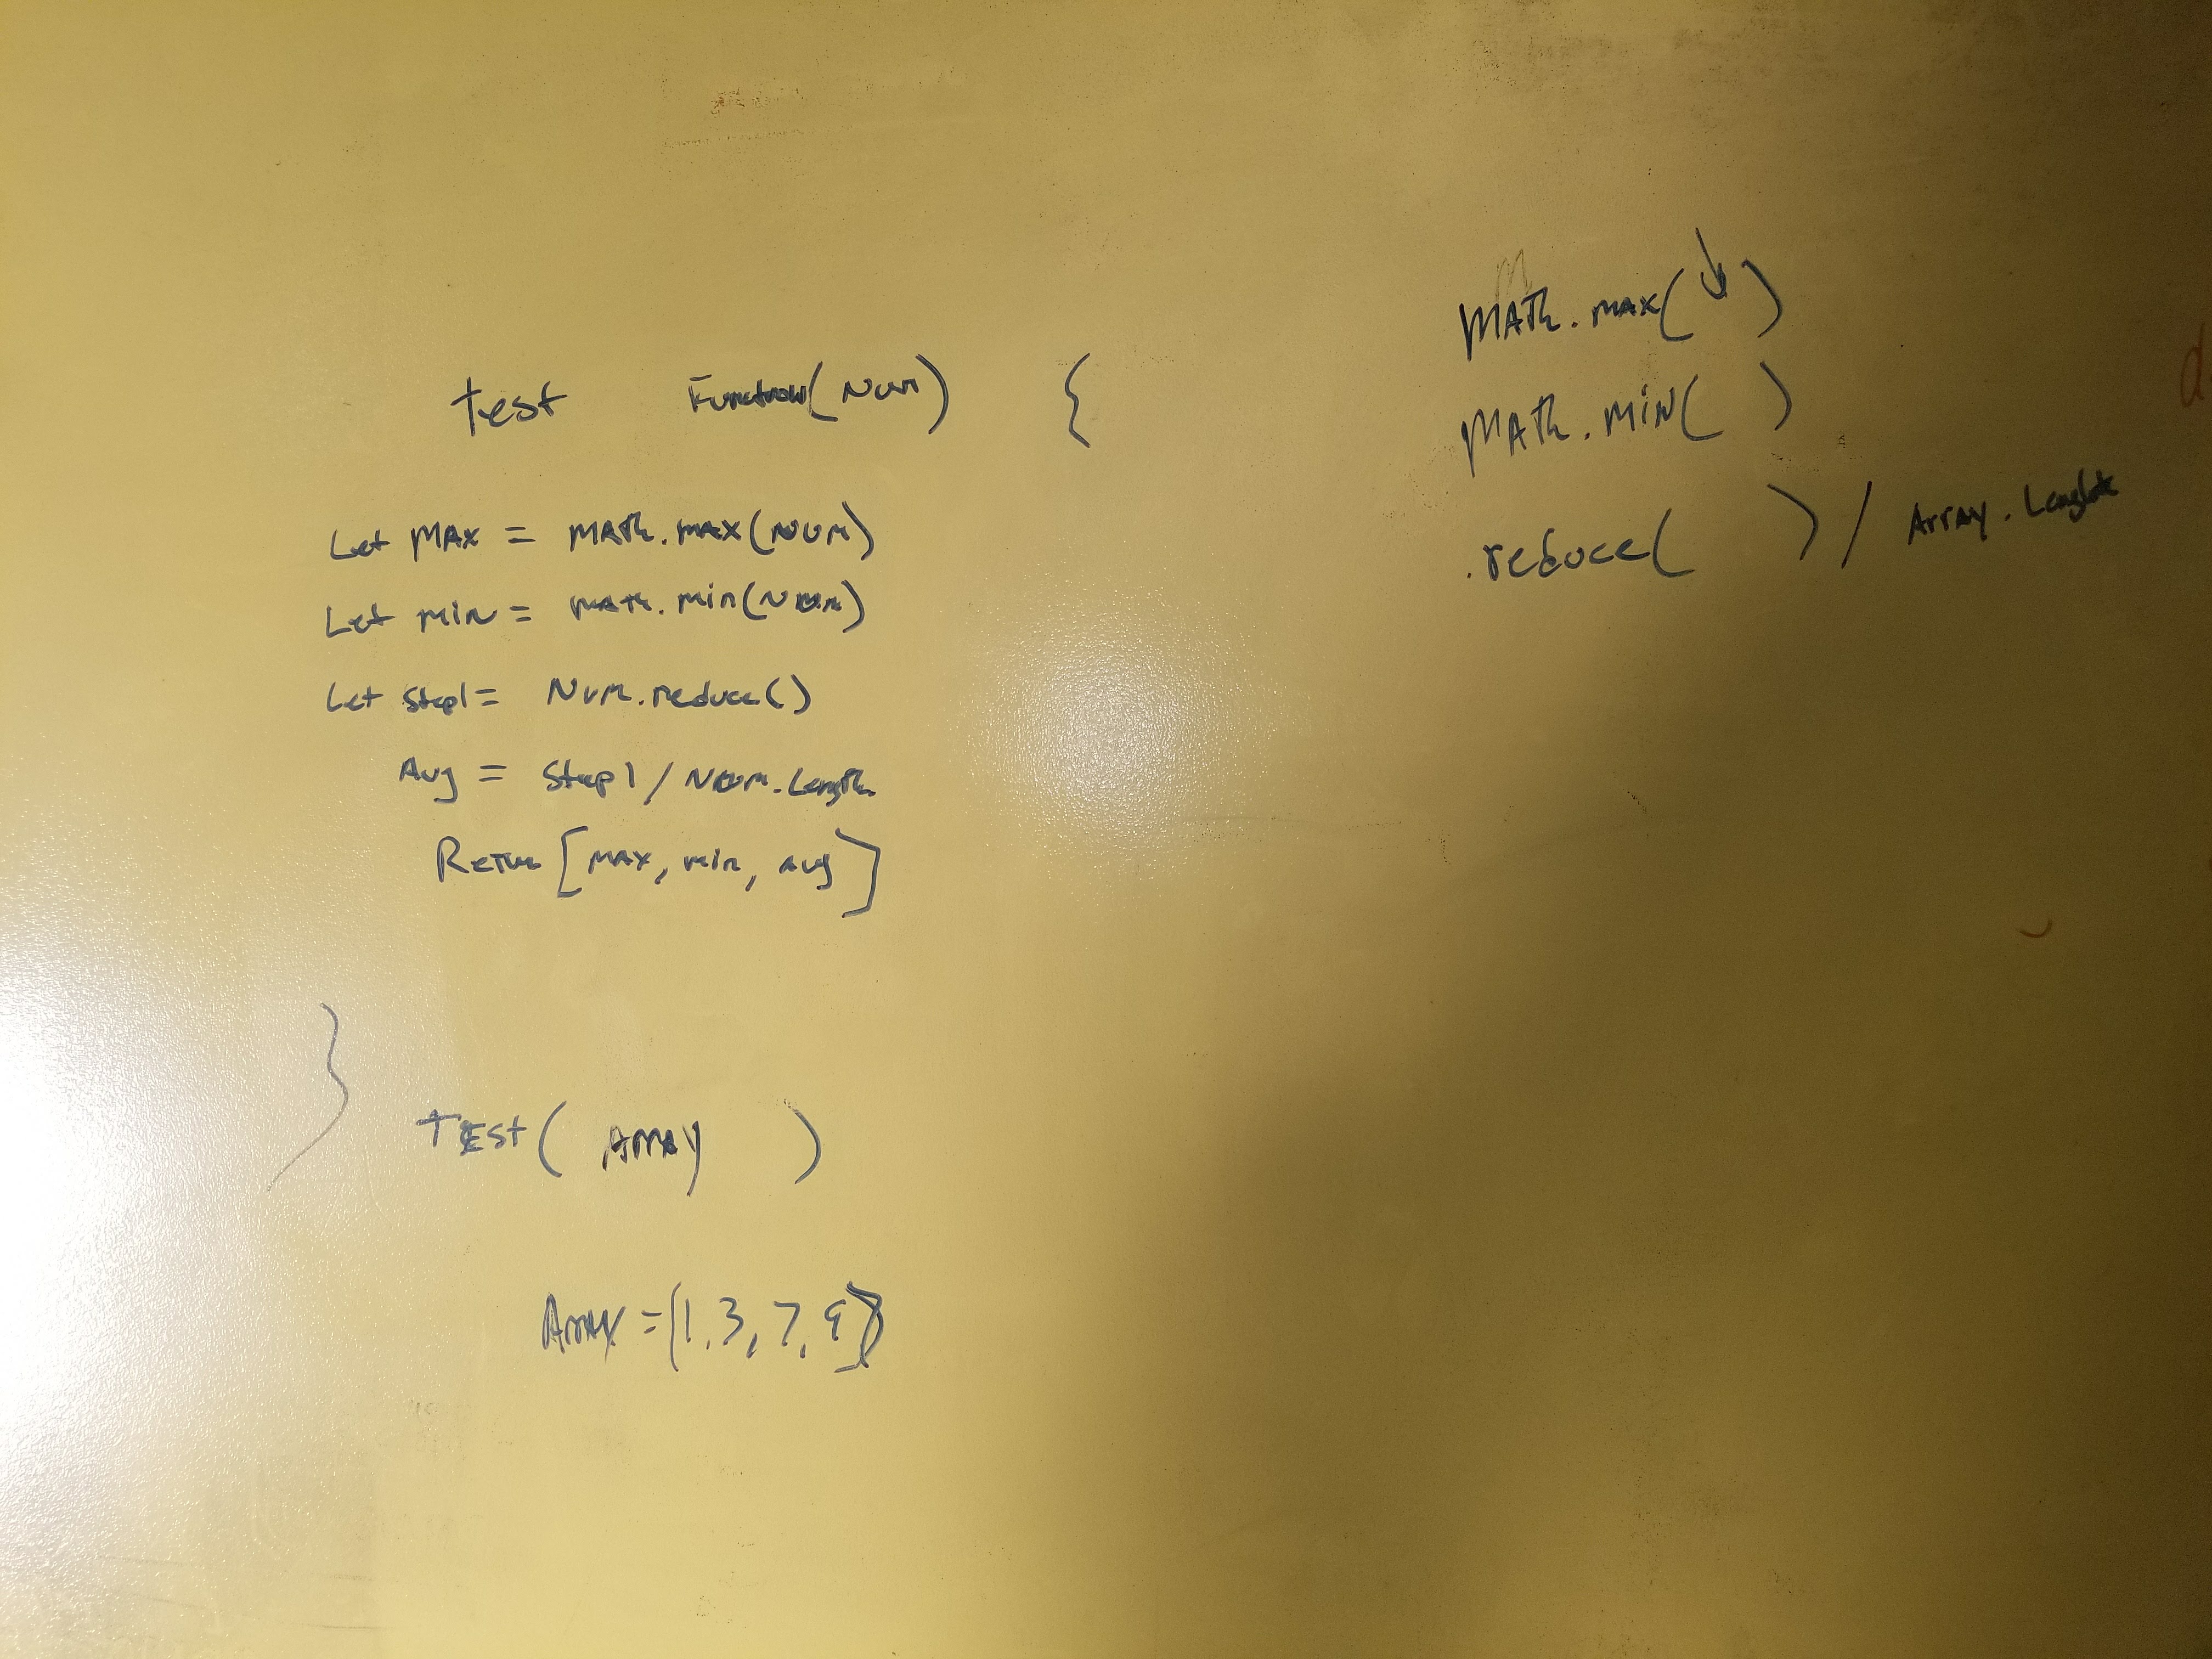 test Function(Num) {
Let MAX = MATh.max(NUM)
Let min = math.min(Num)
Let step1 = Num.reduce()
Avg = step1 / Num.Length
Return [max, min, avg]
}
Test( Array )
Array = [1, 3, 7, 9]
MATh.max( )
MATh.min( )
.reduce( ) / Array.Length